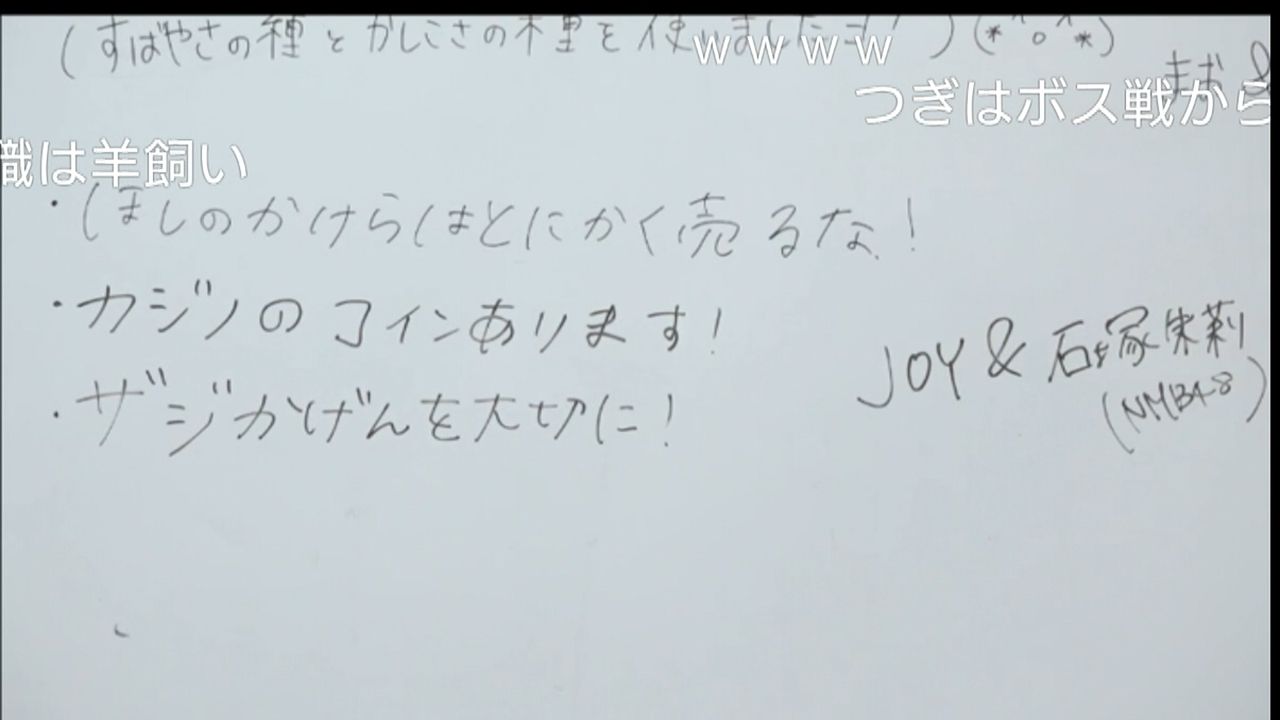 (すばやさの種とかしこさの木里を使いましたヨ!)(*^o^*)
wwww
まお &
つぎはボス戦から
職は羊飼い
・ほしのかけらはとにかく売るな!
・カジノのコインあります!
・ザジかげんを大切に!
JOY & 石塚朱莉
(NMB48)